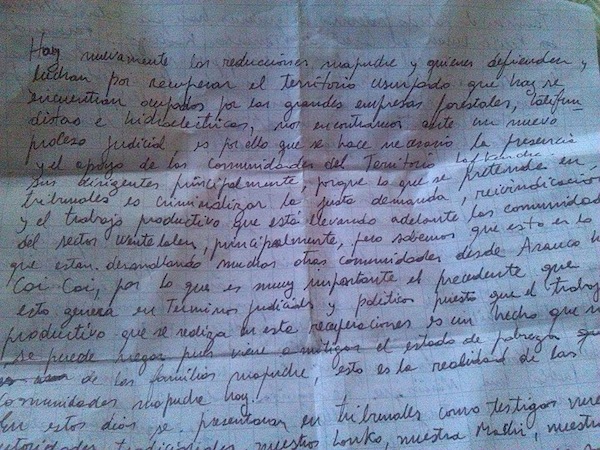 Hoy nuevamente las reducciones mapuche y quienes defienden y
luchan por recuperar el territorio usurpado que hoy se
encuentran ocupados por las grandes empresas forestales, latifun
distas e hidroeléctricas, nos encontramos ante un nuevo
proceso judicial, es por ello que se hace necesario la presencia
y el apoyo de las comunidades del Territorio
sus dirigentes principalmente, porque lo que se pretende en
tribunales es criminalizar la justa demanda, reivindicación
y el trabajo productivo que está llevando adelante las comunidad
del sector Wentelolen, principalmente, pero sabemos que esto es lo
que estan desarrollando muchas otras comunidades desde Arauco h
Coi Coi, por lo que es muy importante el precedente que
esto genera en Terminos judiciales y politicos puesto que el trabajo
productivo que se realiza en esta recuperaciones es un hecho que n
se puede negar pues viene a mitigar el estado de pobreza
de las familias mapuche, esto es la realidad de las
comunidades mapuche hoy.
En estos dias se presentaran en tribunales como testigos
tradicionales, nuestros Lonko, nuestra Machi, nuestros